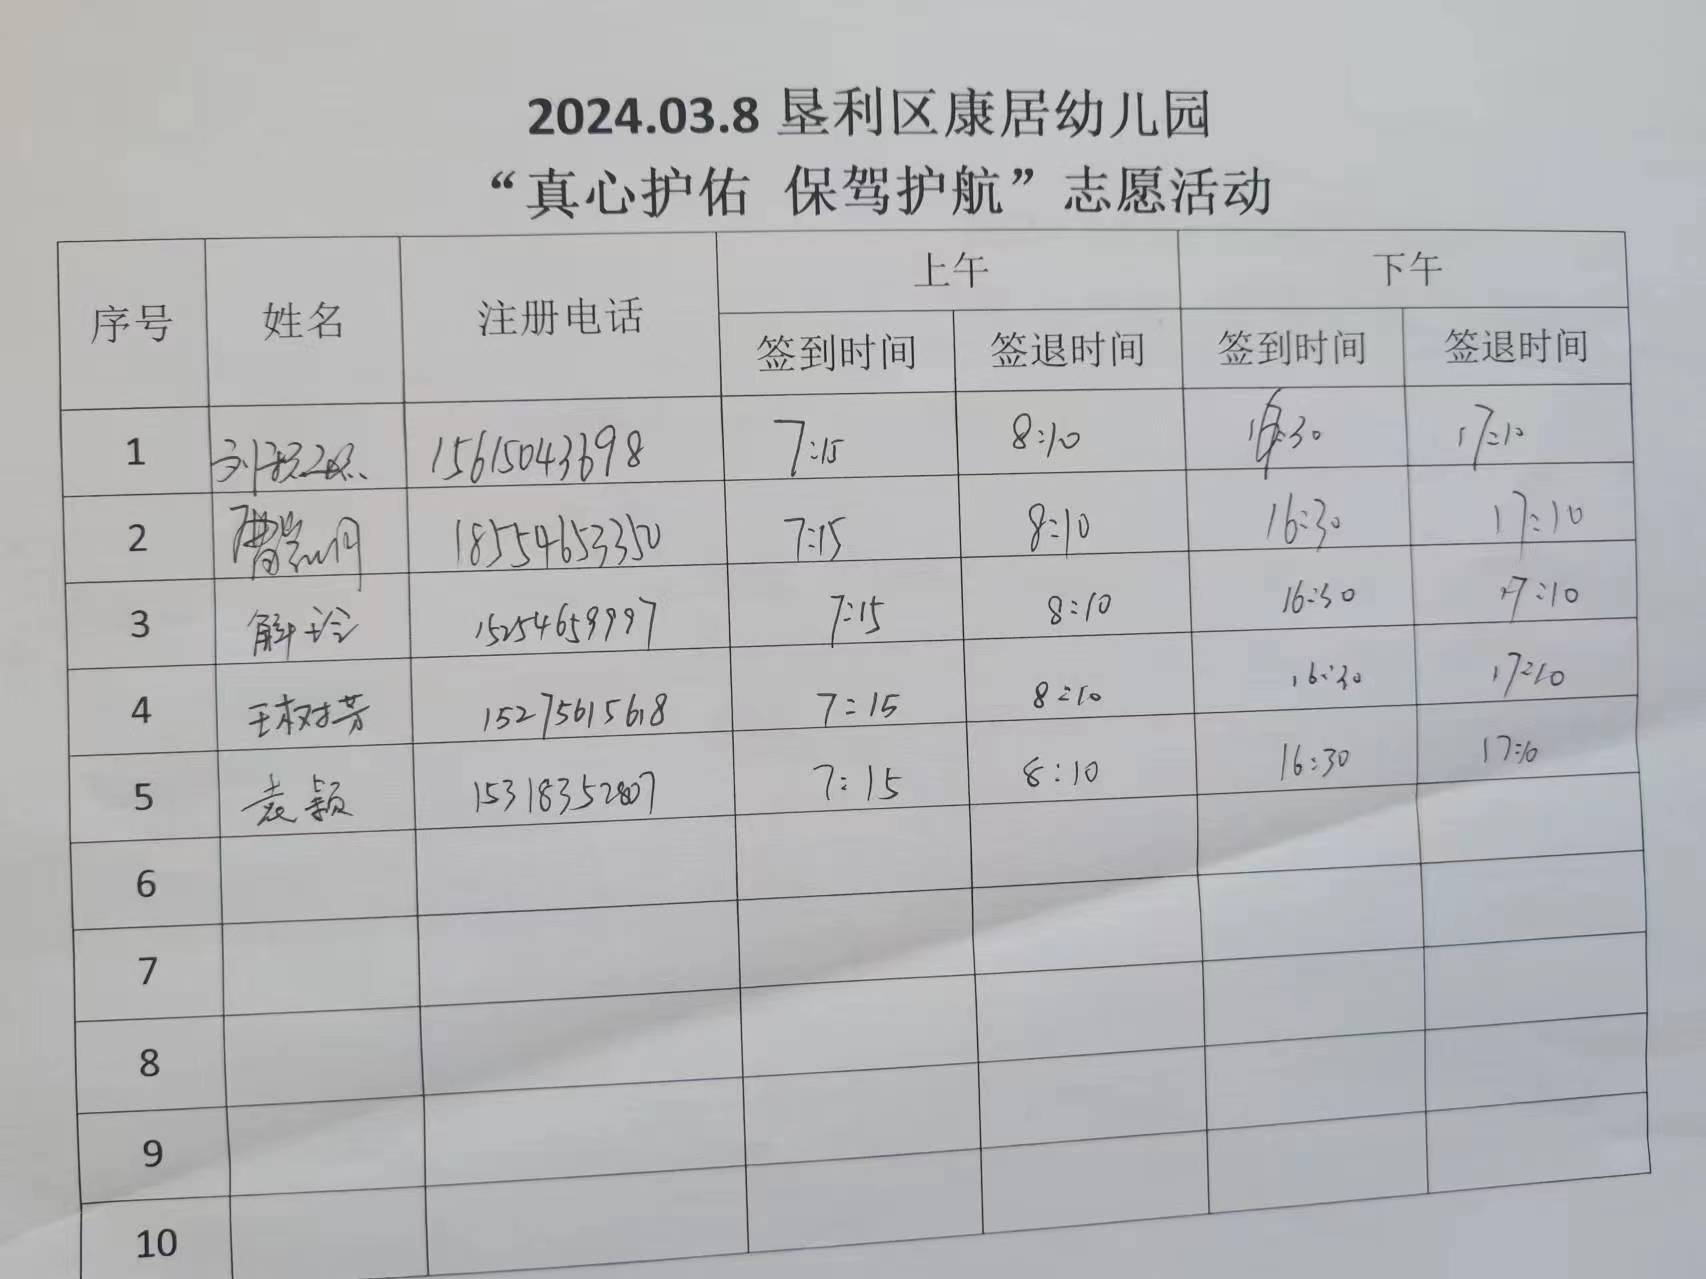 2024.03.8 垦利区康居幼儿园
“真心护佑 保驾护航”志愿活动
序号 姓名 注册电话 上午 下午
签到时间 签退时间 签到时间 签退时间
1 15615043698 7:15 8:10 17:10
2 18554653350 7:15 8:10 16:30 17:10
3 解 15254659997 7:15 8:10 16:30 17:10
4 王树芳 15275615618 7:15 8:10 16:30 17:10
5 袁颖 15318352807 7:15 8:10 16:30 17:10
6
7
8
9
10